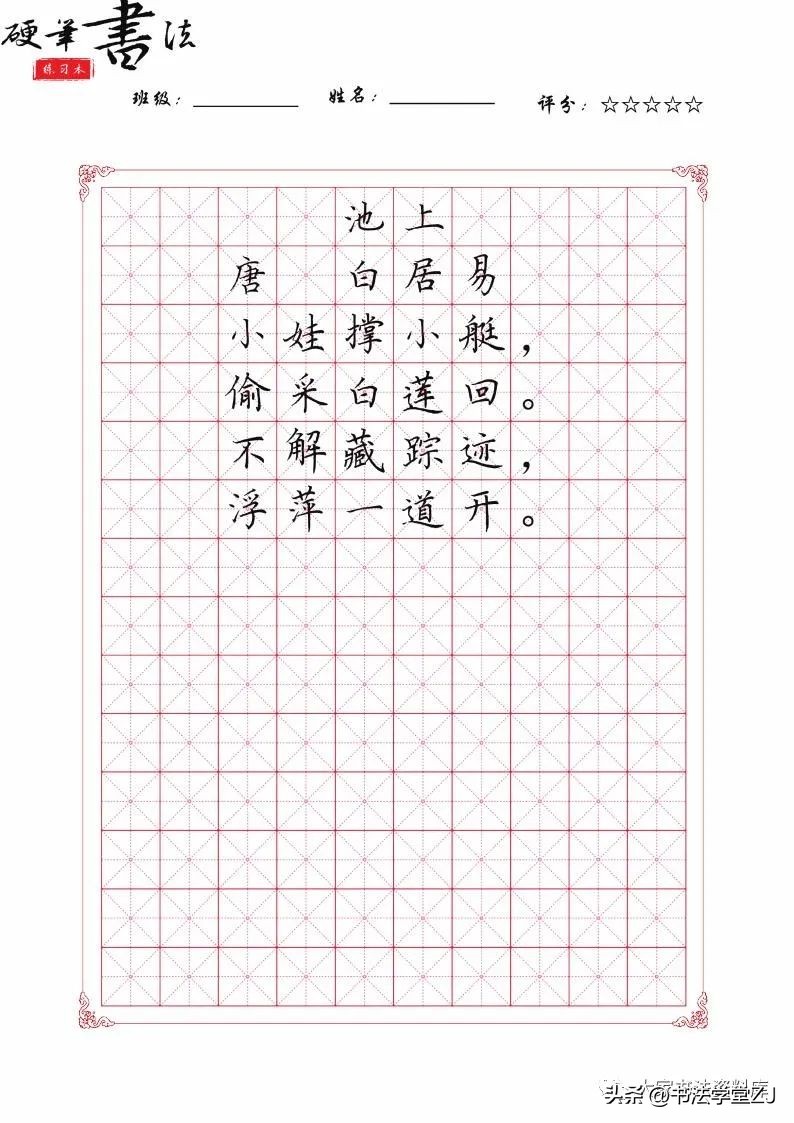 硬筆書法
练习本
班级： 姓名： 评分：☆☆☆☆☆
池上
唐 白居易
小娃撑小艇，
偷采白莲回。
不解藏踪迹，
浮萍一道开。
大家书法资料库
头条@书法学堂ZJ